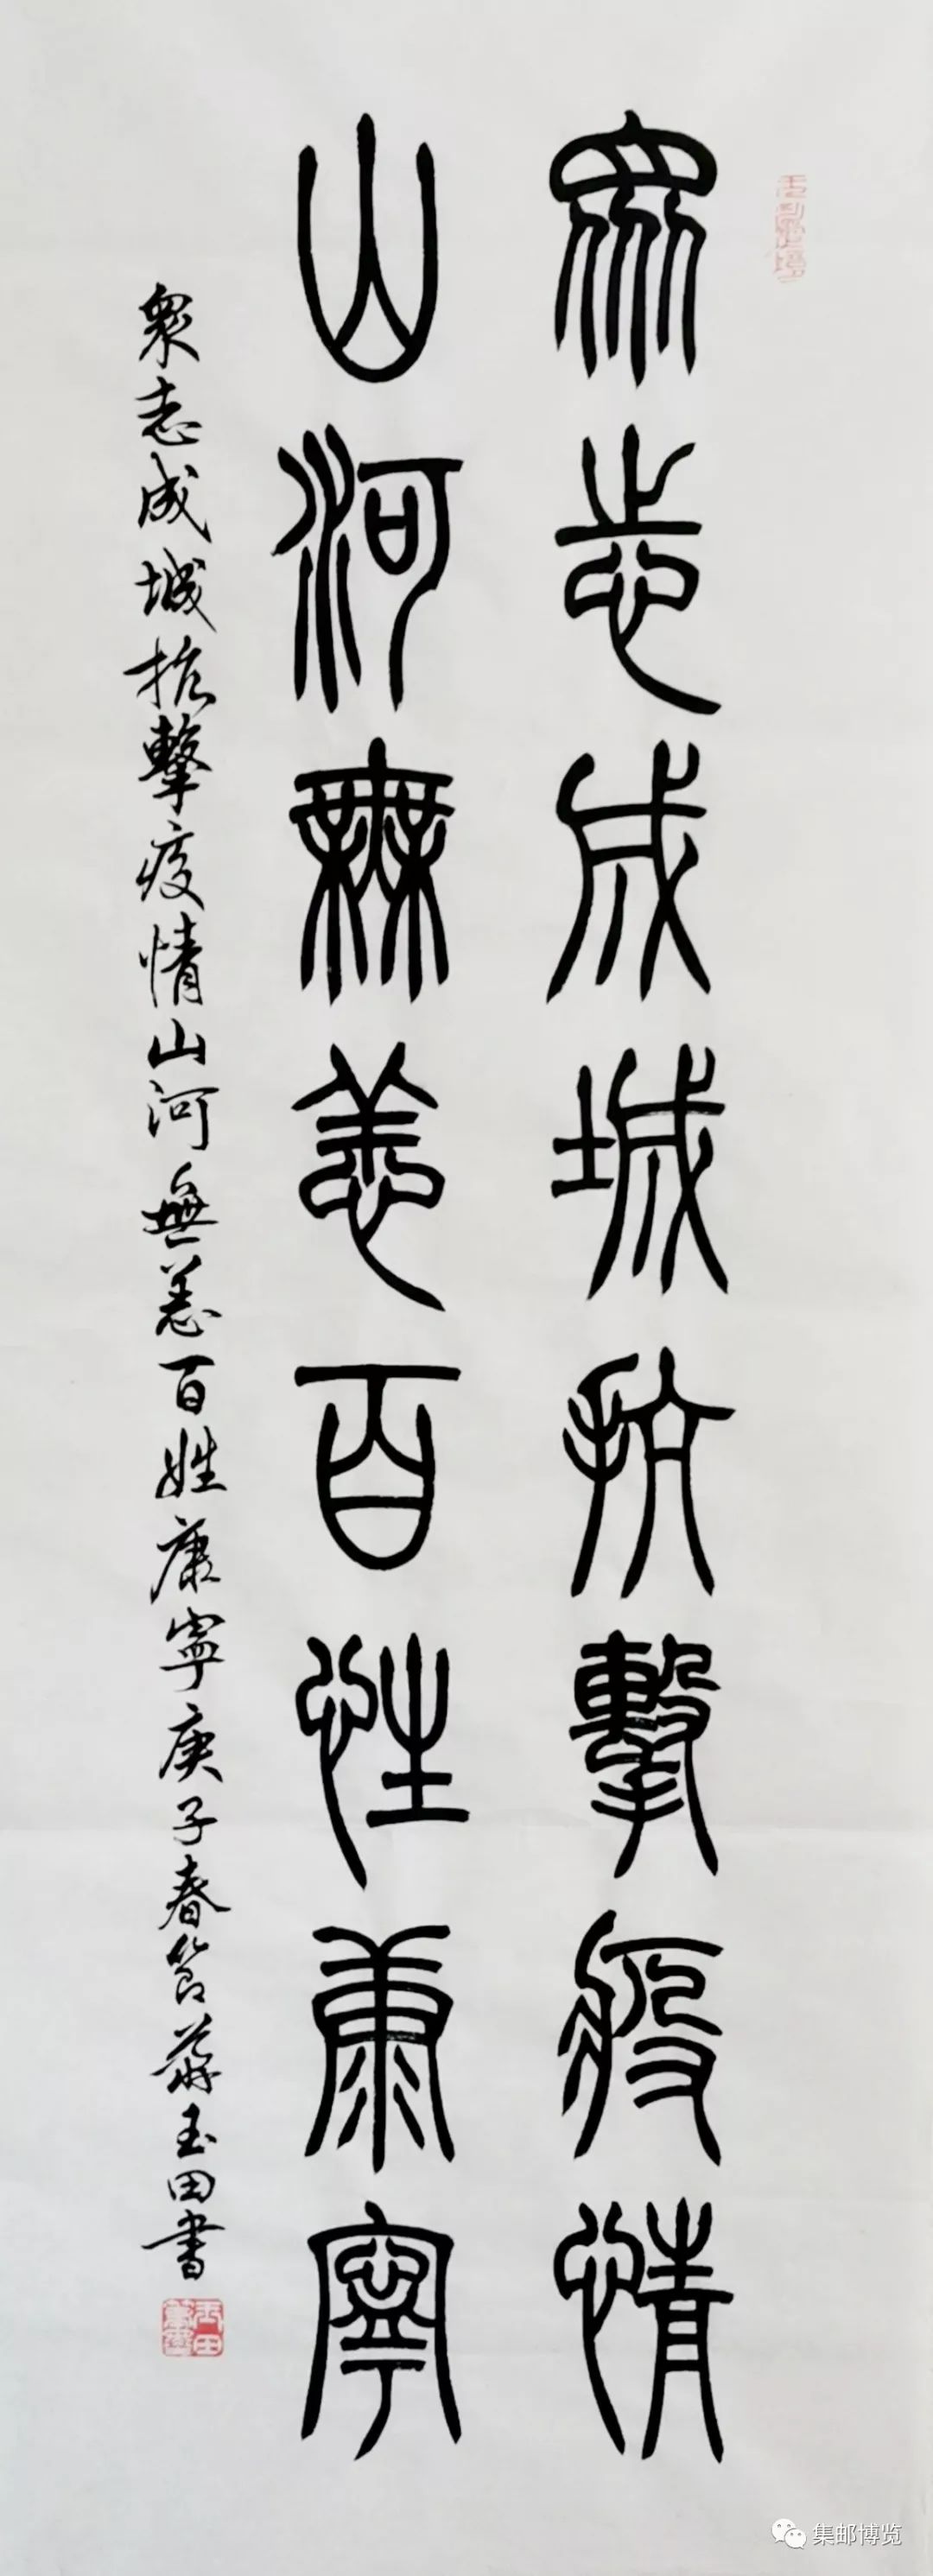 衆志成城抗擊疫情
山河無恙百姓康寧
衆志成城抗擊疫情山河無恙百姓康寧庚子春節玉田書
玉田
集邮博览